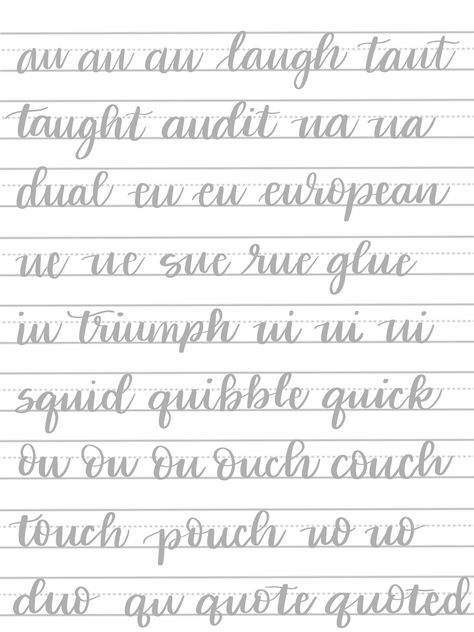 au au au laugh taut
taught audit ua ua
dual eu eu european
ue ue sue rue glue
iu triumph ui ui ui
squid quibble quick
ou ou ou ouch couch
touch pouch uo uo
duo qu quote quoted